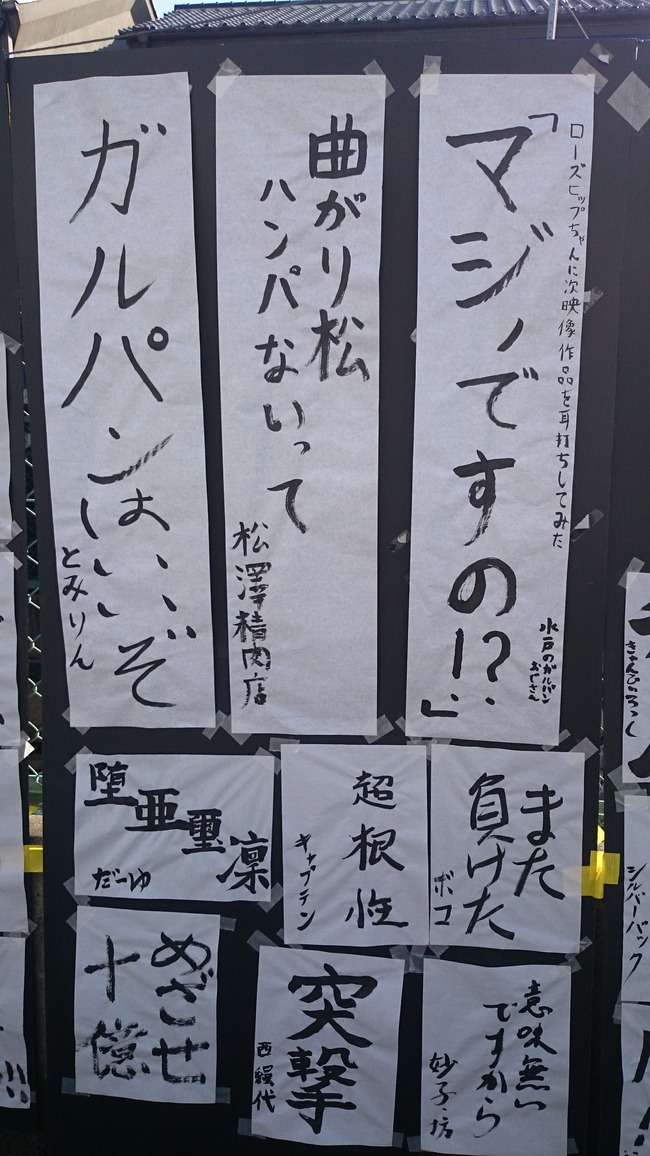 ローズヒップちゃんに次映像作品を耳打ちしてみた
「マジノですの!?」
水戸のガルパン
おじさん
曲がり松
ハンパないって
松澤精肉店
ガルパンはいいぞ
とみりん
また
負けた
ボコ
超根性
キャプテン
堕亜璽凛
だーゆ
意味無い
ですから
妙子・坊
突撃
西絹代
めざせ
十億
きゃんひろっし
シルバーバック